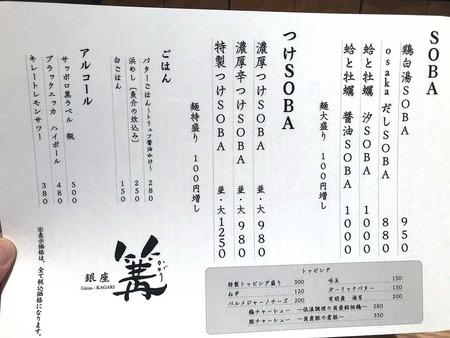 SOBA
鶏白湯SOBA 950
osakaだしSOBA 880
蛤と牡蠣 汐SOBA 1000
蛤と牡蠣 醤油SOBA 1000
麺大盛り 100円増し
つけSOBA
濃厚つけSOBA 並・大 980
濃厚辛つけSOBA 並・大 980
特製つけSOBA 並・大 1250
麺特盛り 100円増し
ごはん
バターごはん〜トリュフ醤油かけ〜 280
浜めし(蒸介の炊込み) 250
白ごはん 150
アルコール
サッポロ黒ラベル 瓶 500
ブラックニッカ ハイボール 480
キレートレモンサワー 380
※表示価格は、全て税込価格になります。
銀座
Ginza-KAGARI
篝
かがり
トッピング
特製トッピング盛り 300
味玉 150
ねぎ 100
ガーリックバター 150
パルメジャーノチーズ 200
有明産 海苔 200
鶏チャーシュー 〜低温調理の国産銘柄鶏〜 280
豚チャーシュー 〜国産豚の煮豚〜 350